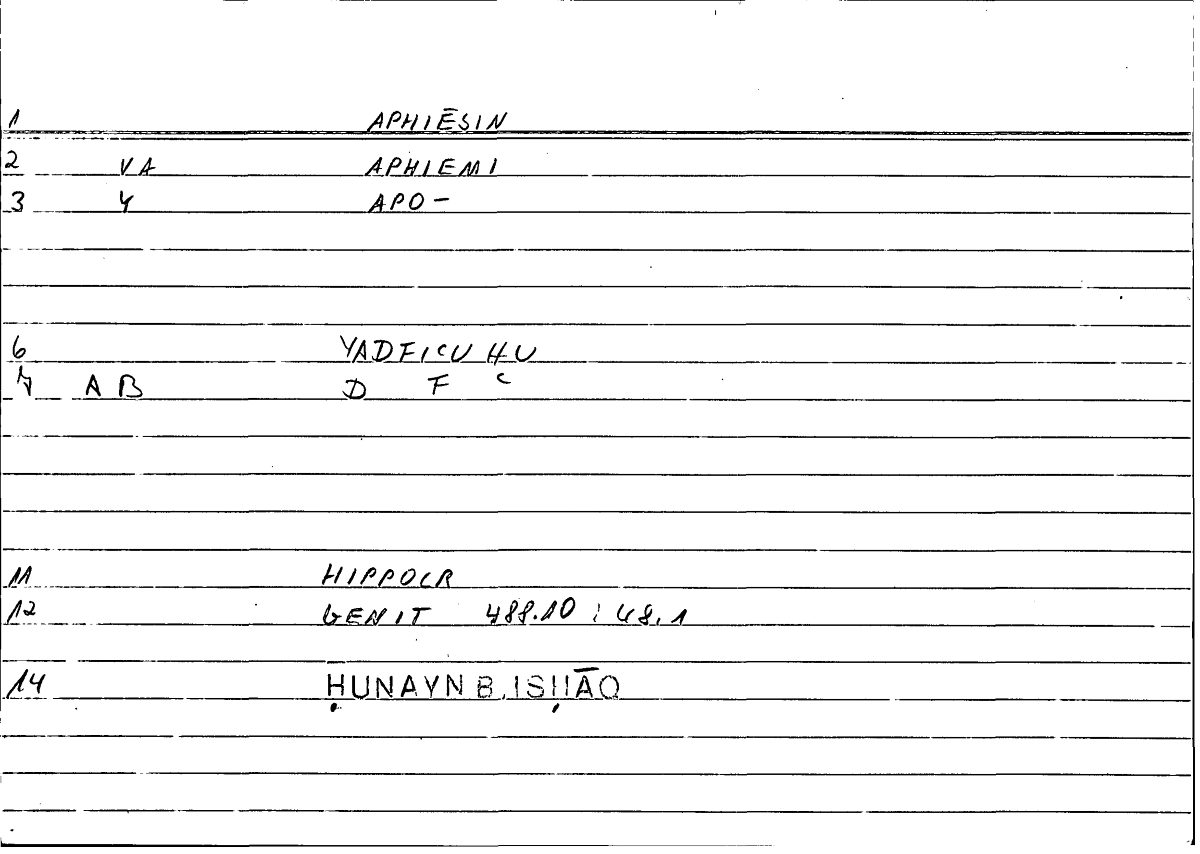 1 APHIĒSIN
2 VA APHIEMI
3 4 APO-
6 YADFICU HU
7 A B D F C
11 HIPPOCR
12 GENIT 488.10 : 48.1
14 ḤUNAYN B. ISḤĀQ